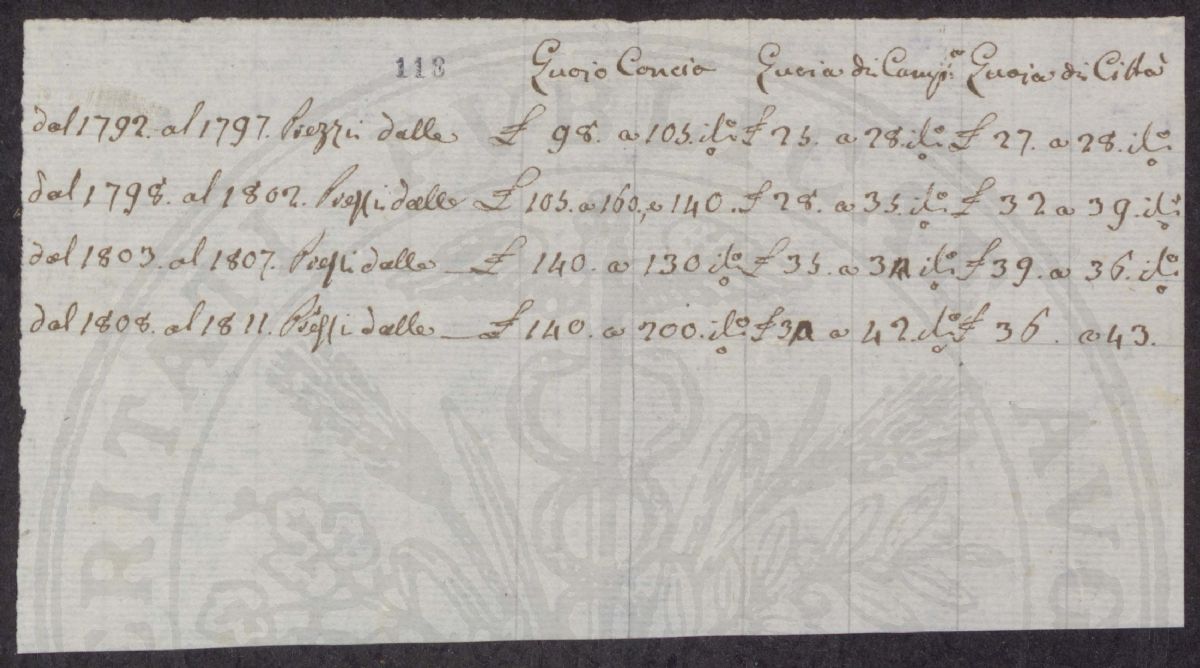 118
Quojo Concio Quoia di Camp.ª Quoja di Città
dal 1792. al 1797. Prezzi dalle £ 98. a 105. il % £ 25. a 28. il % £ 27. a 28. il %
dal 1798. al 1802. Prezzi dalle £ 105. a 160, e 140. £ 28. a 35. il % £ 32 a 39. il %
dal 1803. al 1807. Prezzi dalle £ 140. a 130 il % £ 35. a il % £ 39. a 36. il %
dal 1808. al 1811. Prezzi dalle £ 140. a 200. il % £ a 42. il % £ 36. a 43.